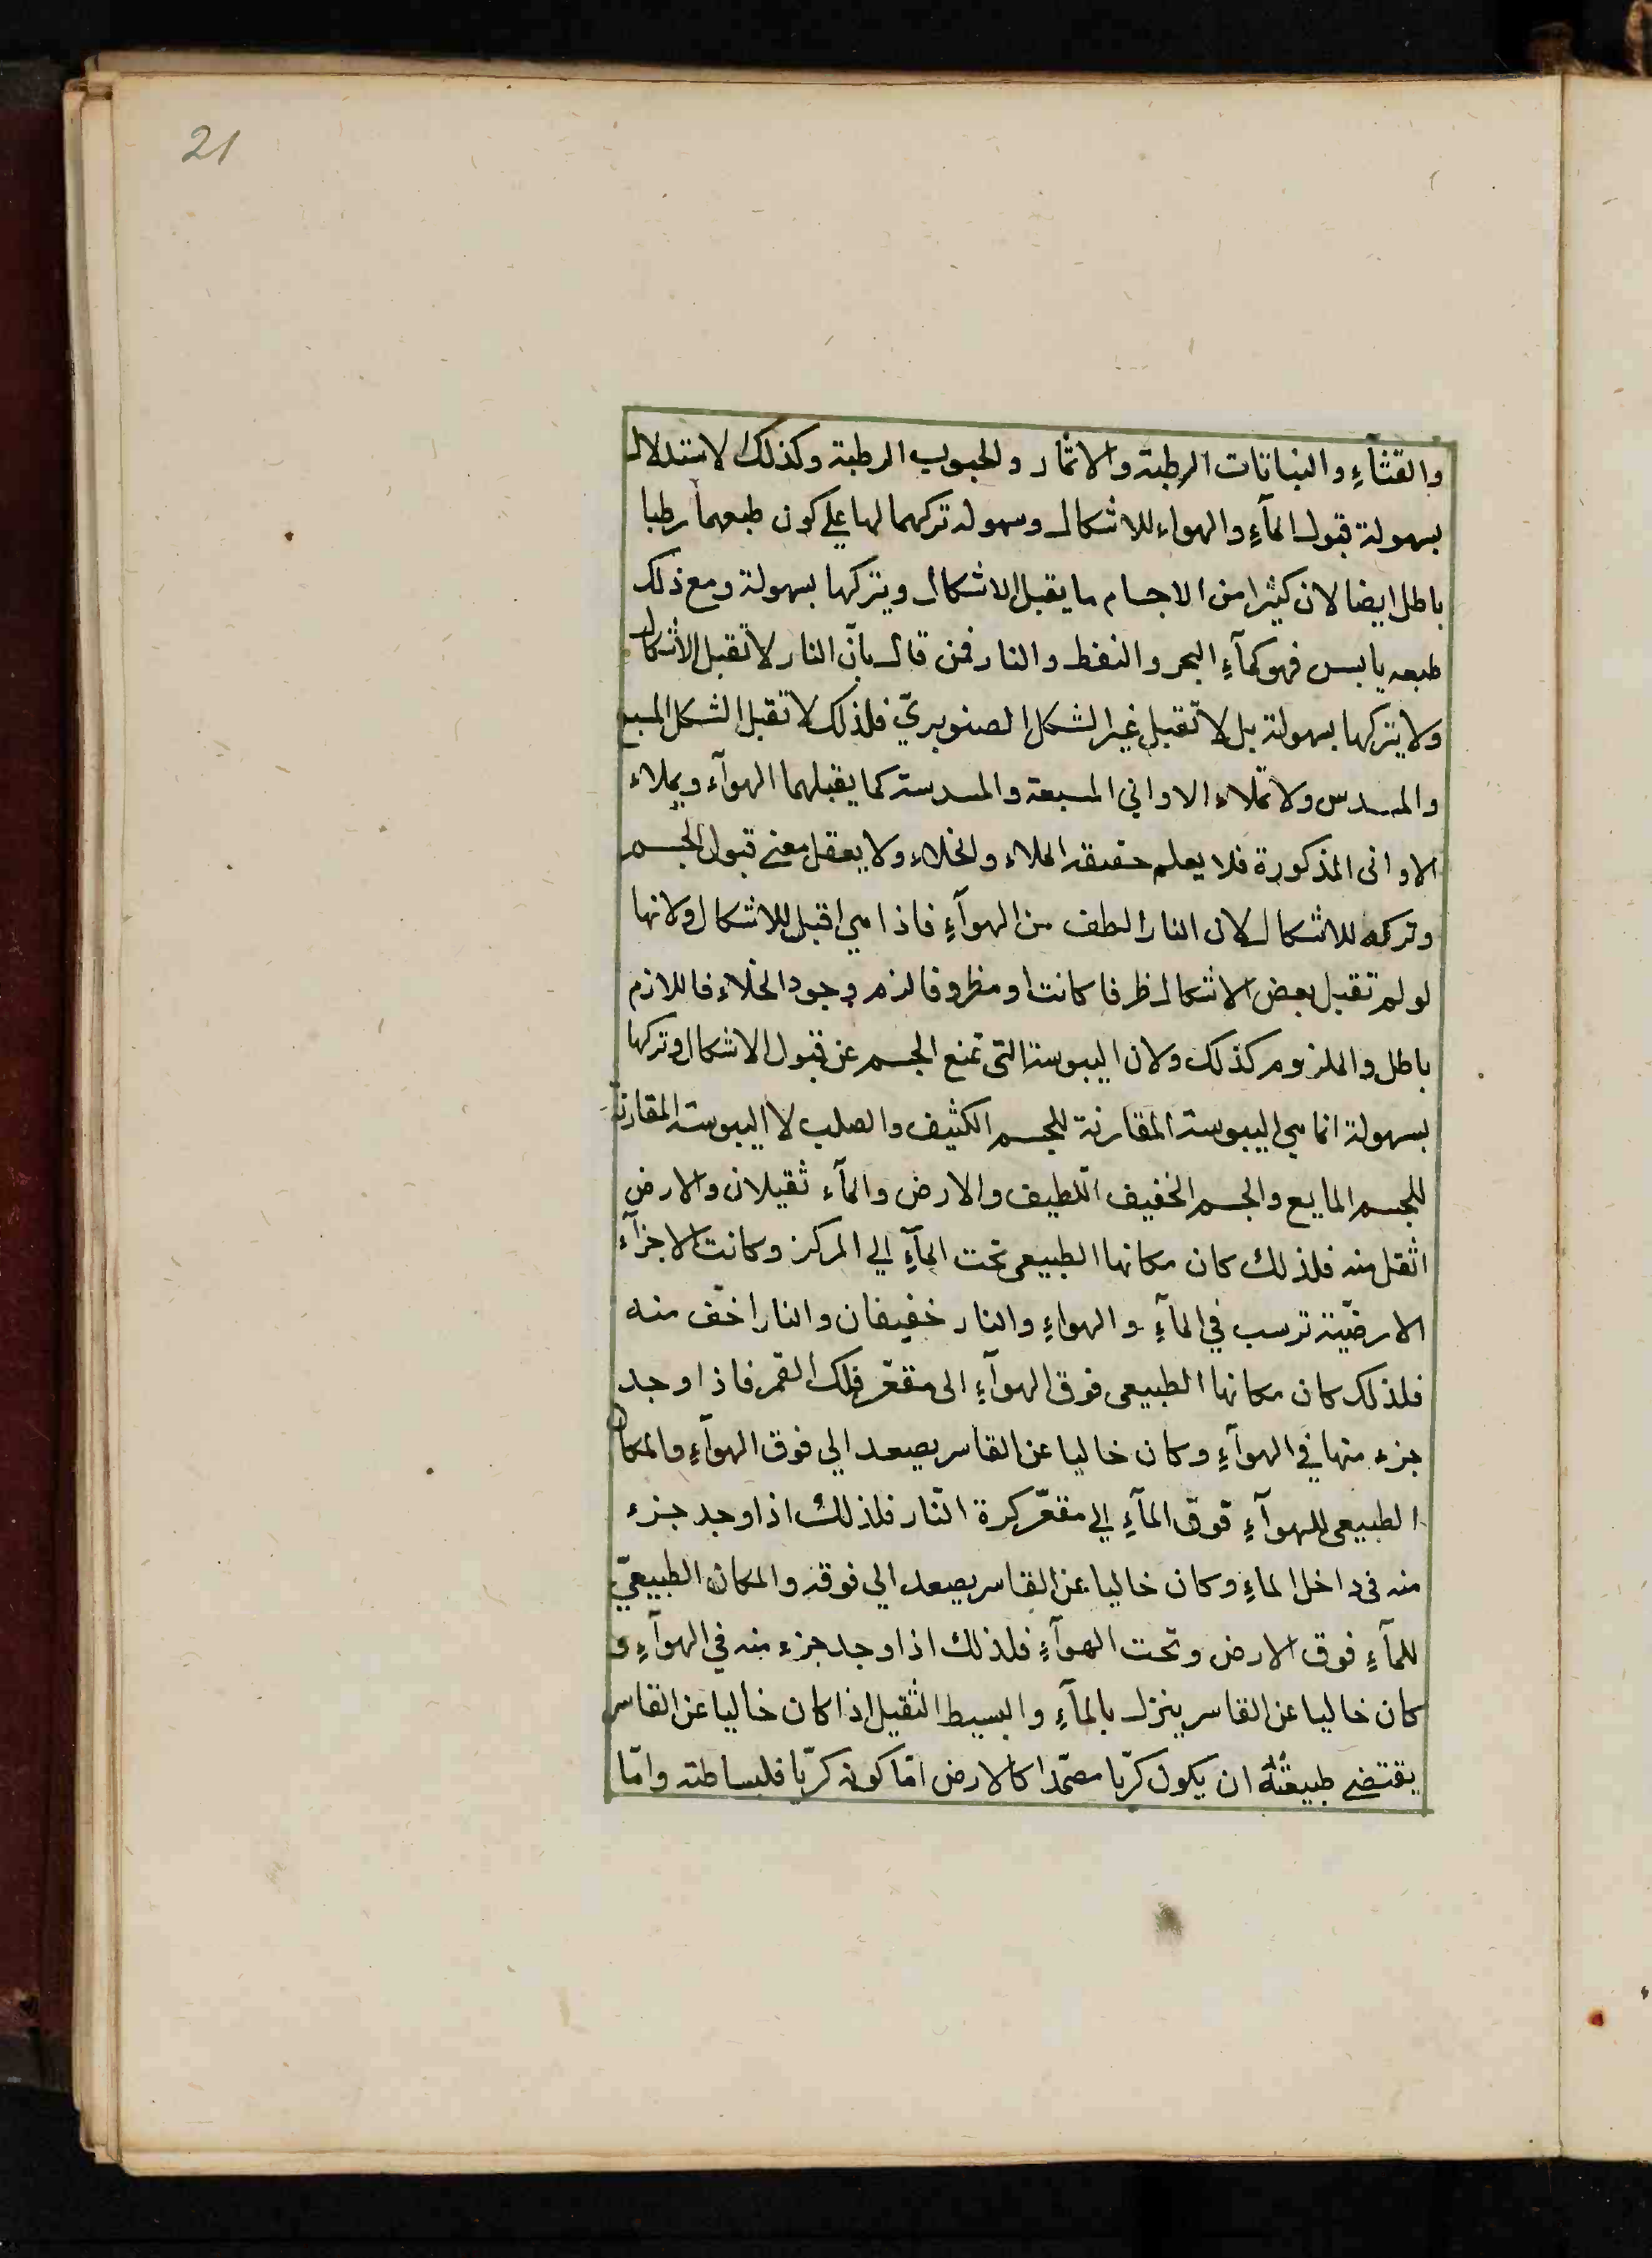 21
والقثآءِ والنباتات الرطبة والاثمار والحبوب الرطبة وكذلك لاستدلال
بسهولة قبول المآءِ والهواء للاشكال وسهولة تركهما لها علي كون طبعهما رطبا
باطل ايضا لان كثيرا من الاجسام ما يقبل الاشكال ويتركها بسهولة ومع ذلك
طبعه يابس فهو كمآءِ البحر والنفط والنار فمن قال بانّ النار لا تقبل الاشكال
ولا يتركها بسهولة بل لا تقبل غير الشكل الصنوبريّ فلذلك لا تقبل الشكل المسبع
والمسدس ولا تملاء الاواني المسبعة والمسدسة كما يقبلهما الهوآء ويملاء
الاوانى المذكورة فلا يعلم حقيقة الملاء والخلاء ولا يعقل معنى قبول الجسم
وتركه للاشكال لان النار الطف من الهوآءِ فاذا هي اقبل للاشكال ولانها
لو لم تقبل بعض الاشكال ظرفا كانت او مظروفا لزم وجود الخلاء فاللازم
باطل والملزوم كذلك ولان اليبوسة التى تمنع الجسم عن قبول الاشكال وتركها
بسهولة انما هي اليبوسة المقارنة للجسم الكثيف والصلب لا اليبوسة المقارنة
للجسم المايع والجسم الخفيف اللطيف والارض والمآء ثقيلان والارض
اثقل منه فلذلك كان مكانها الطبيعى تحت المآءِ الي المركز وكانت الاجزآء
الارضيّة ترسب في المآءِ والهواءِ والنار خفيفان والنار اخف منه
فلذلك كان مكانها الطبيعى فوق الهوآءِ الى مقعّر فلك القمر فاذا وجد
جزء منها في الهوآءِ وكان خاليا عن القاسر يصعد الي فوق الهوآءِ والمكان
الطبيعى للهوآءِ فوق المآءِ الي مقعّر كرة النّار فلذلك اذا وجد جزء
منه فى داخل الماءِ وكان خاليا عن القاسر يصعد الي فوقه والمكان الطبيعيّ
للمآءِ فوق الارض وتحت الهوآءِ فلذلك اذا وجد جزء منه في الهوآءِ و
كان خاليا عن القاسر ينزل بالمآءِ والبسيط الثقيل اذا كان خاليا عن القاسر
يقتضى طبيعتُهُ ان يكون كرّيا مصمّدا كالارض امّا كونه كرّيا فلبساطته وامّا